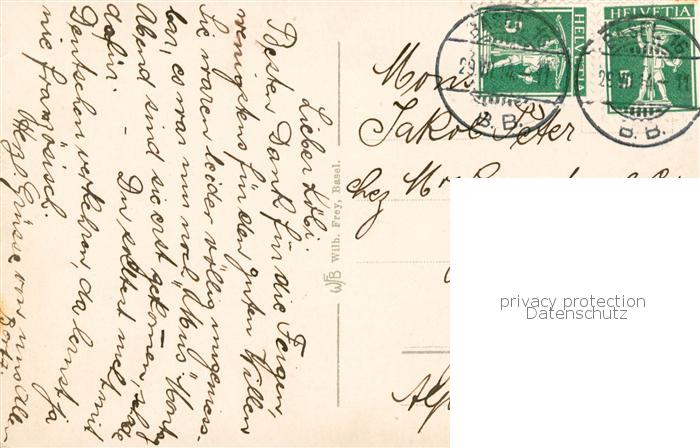 Lieber Köbi.
Besten Dank für die Feigen,
wenigstens für den guten Willen
Sie waren leider völlig ungeniess-
bar, es war nur noch "Mus" Montag
Abend sind sie erst gekommen, schade
dafür. — Du solltest nicht mit
Deutschen verkehren, da lernst ja
nie französisch.
Herzl. Grüsse von uns Allen
Wilh. Frey, Basel.
WFB
HELVETIA
5
HELVETIA
B. B.
B. B.
Jakob Peter
chez
privacy protection
Datenschutz